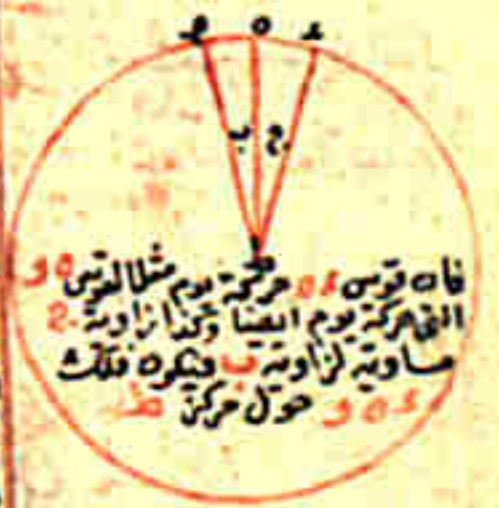 و ه د
ب ج
ا
فان قوس د ه حركة يوم مثلا لقوس ه و
التى حركة يوم ايضا وكذا زاوية ج
مساوية لزاوية ب فيكون فلك
د ه و حول مركز